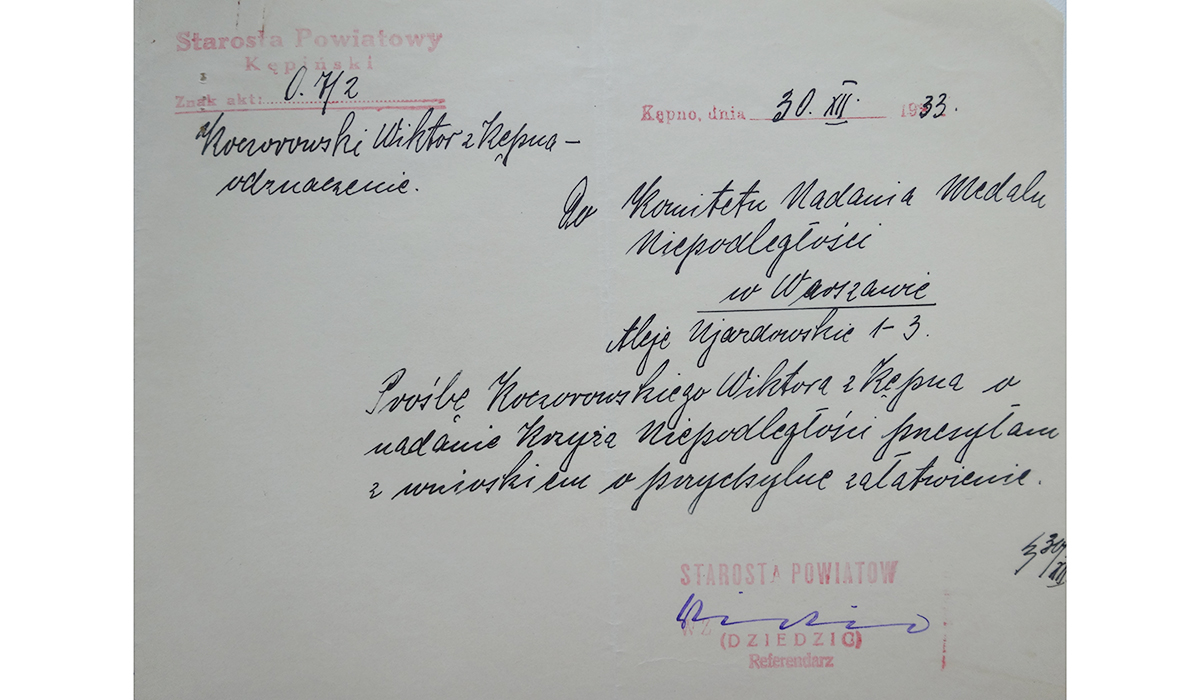 Starosta Powiatowy
Kępiński
Znak akt: O. 7/2
Kępno, dnia 30. XII. 1933.
Koczorowski Wiktor z Kępna –
odznaczenie.
Do Komitetu Nadania Medalu
Niepodległości
w Warszawie
Aleje Ujazdowskie 1-3.
Prośbę Koczorowskiego Wiktora z Kępna o
nadanie Krzyża Niepodległości przesyłam
z wnioskiem o przychylne załatwienie.
30/XII
STAROSTA POWIATOW
W Z
(DZIEDZIC)
Referendarz